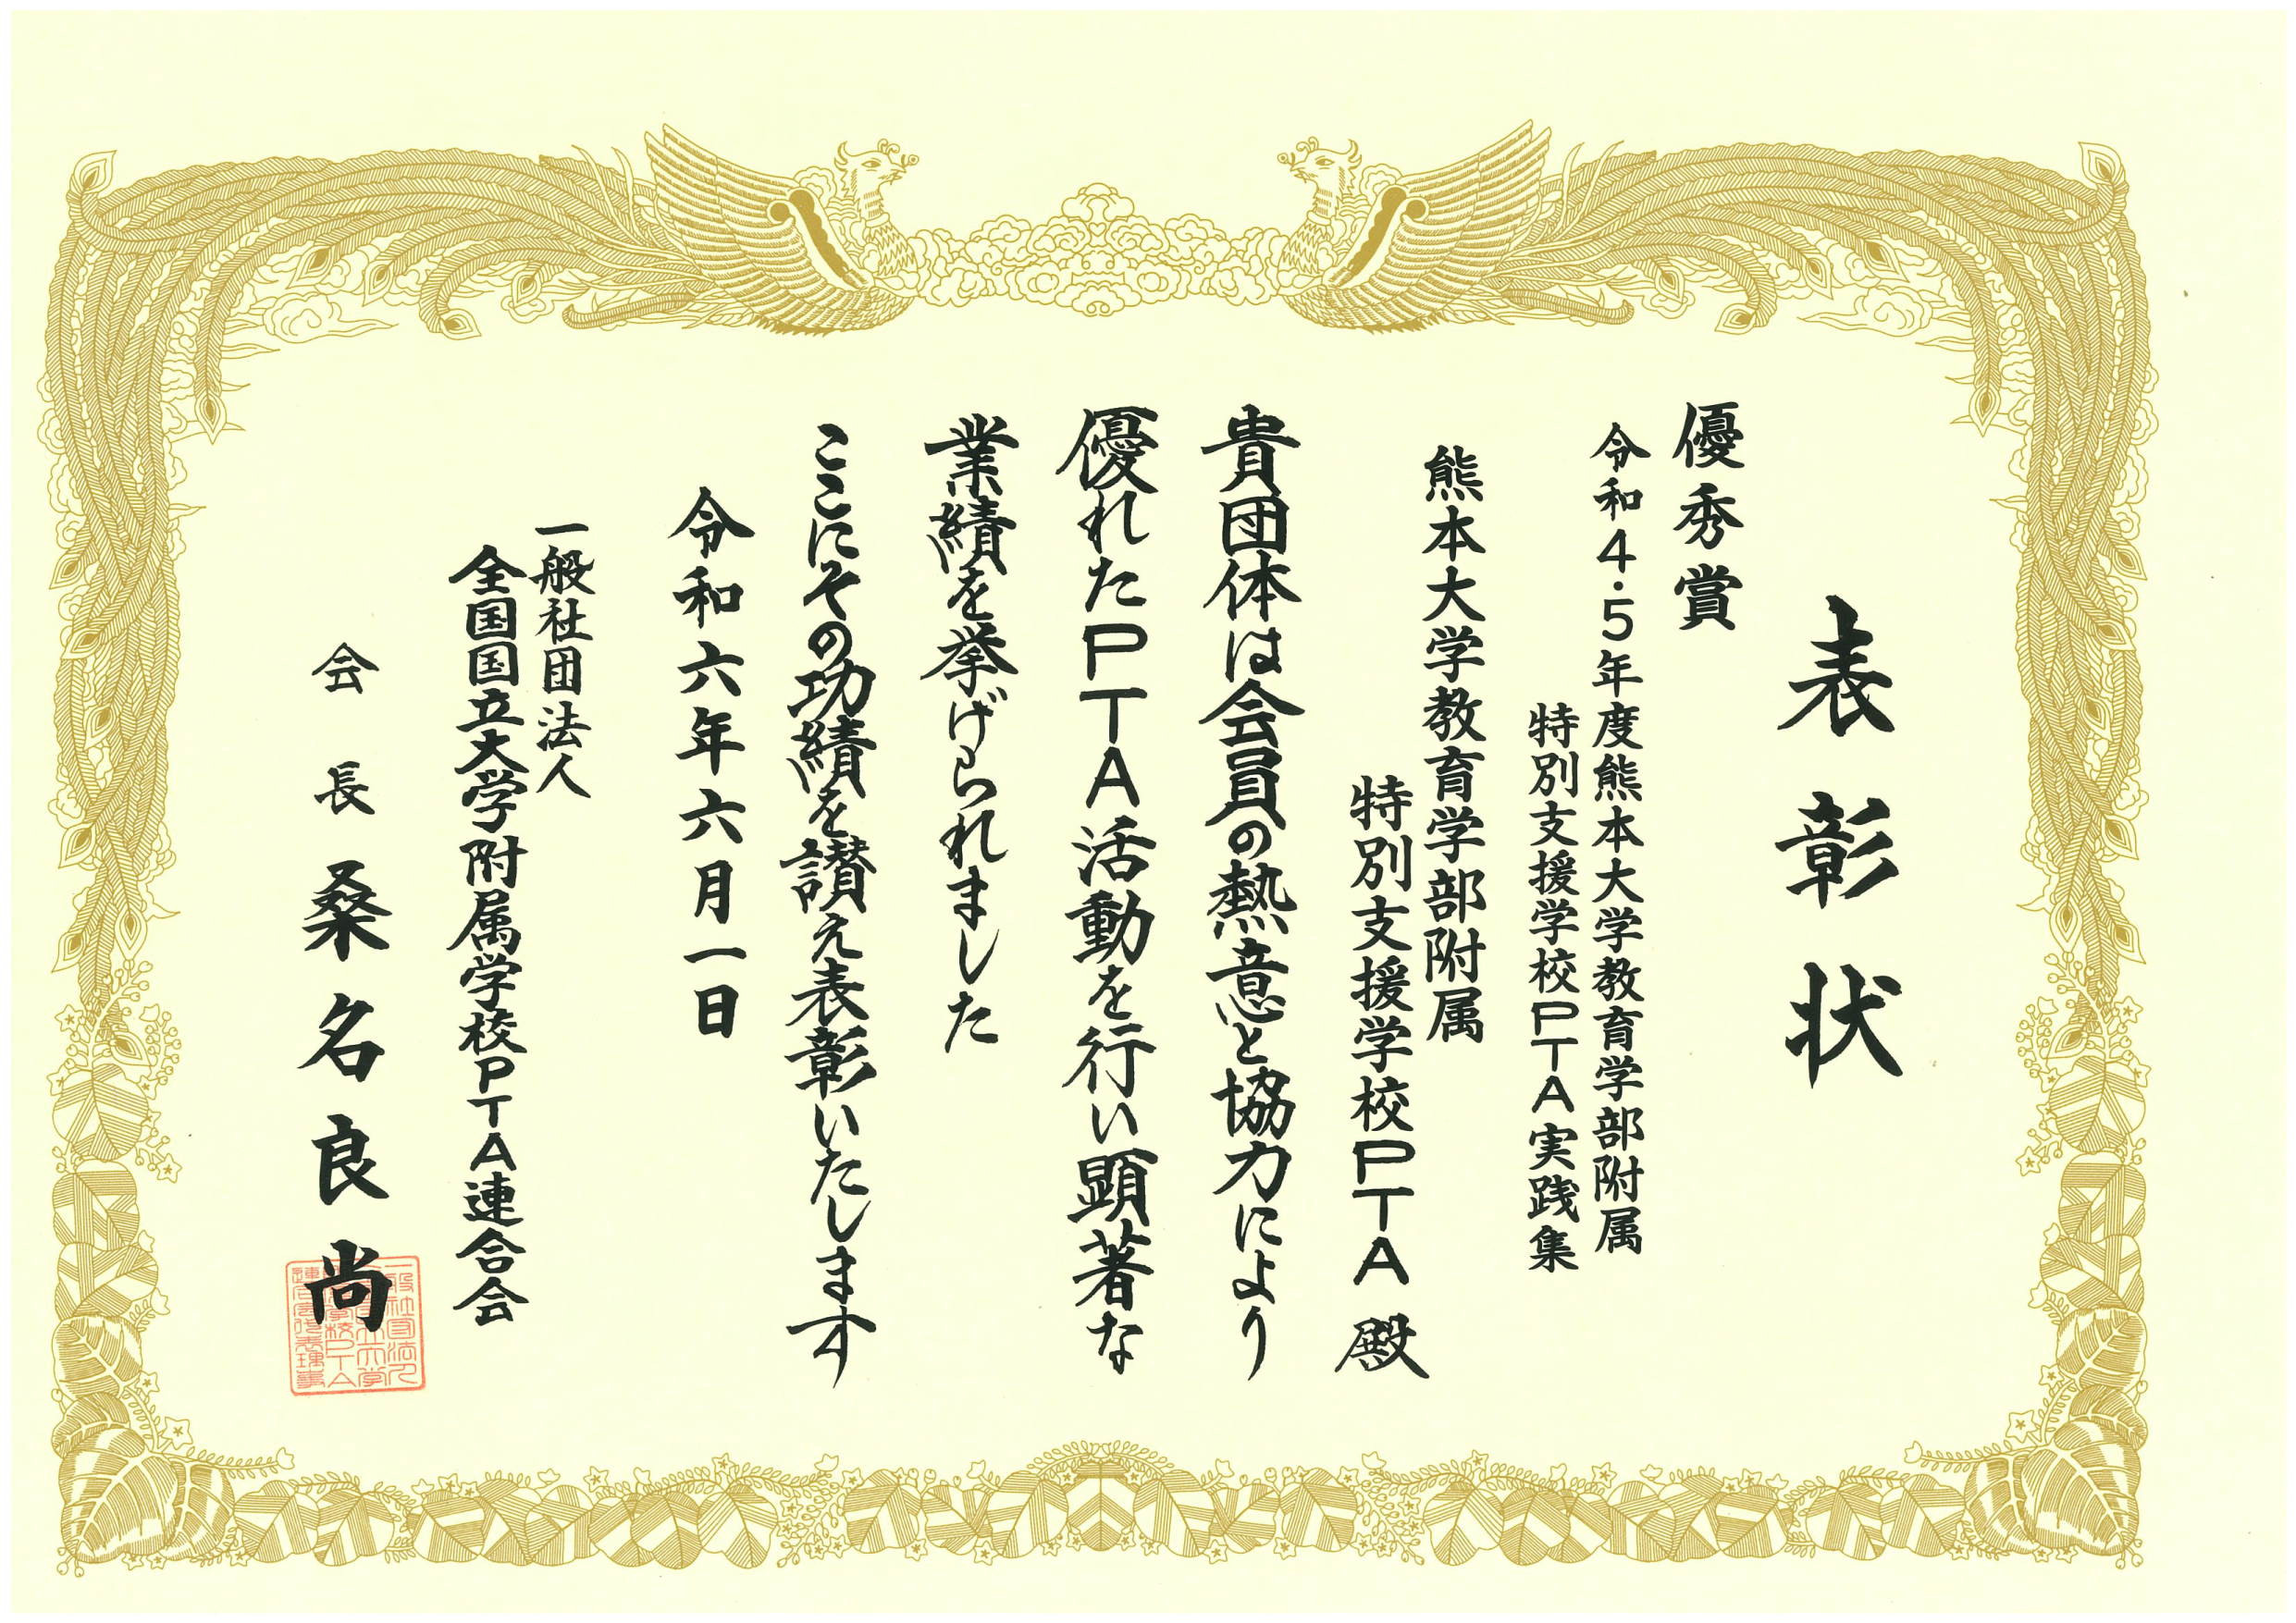 表彰状
優秀賞
令和4・5年度熊本大学教育学部附属
特別支援学校PTA実践集
熊本大学教育学部附属
特別支援学校PTA殿
貴団体は会員の熱意と協力により
優れたPTA活動を行い顕著な
業績を挙げられました
ここにその功績を讃え表彰いたします
令和六年六月一日
一般社団法人
全国国立大学附属学校PTA連合会
会長 桑名良尚